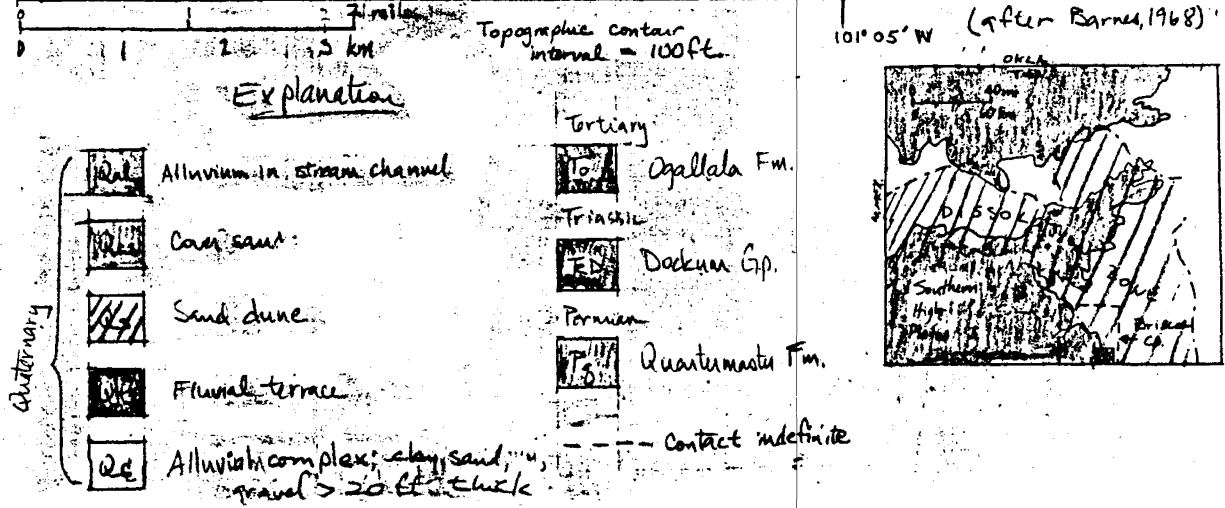 0 2 miles
0 1 2 3 km
Topographic contour
interval = 100 ft.
101° 05' W
(after Barnes, 1968)
Explanation
Quternary
Alluvium in stream channel
Cover sand
Sand dune
Fluvial terrace
Alluvial complex; clay, sand,
gravel > 20 ft thick
Tertiary
To
Ogallala Fm.
Triassic
Dockum Gp.
Permian
Quartermaster Fm.
Contact indefinite
OKLA
40 mi
60 km
DISSOL
ZONE
Southern
High
Plains
Briscoe
Co.